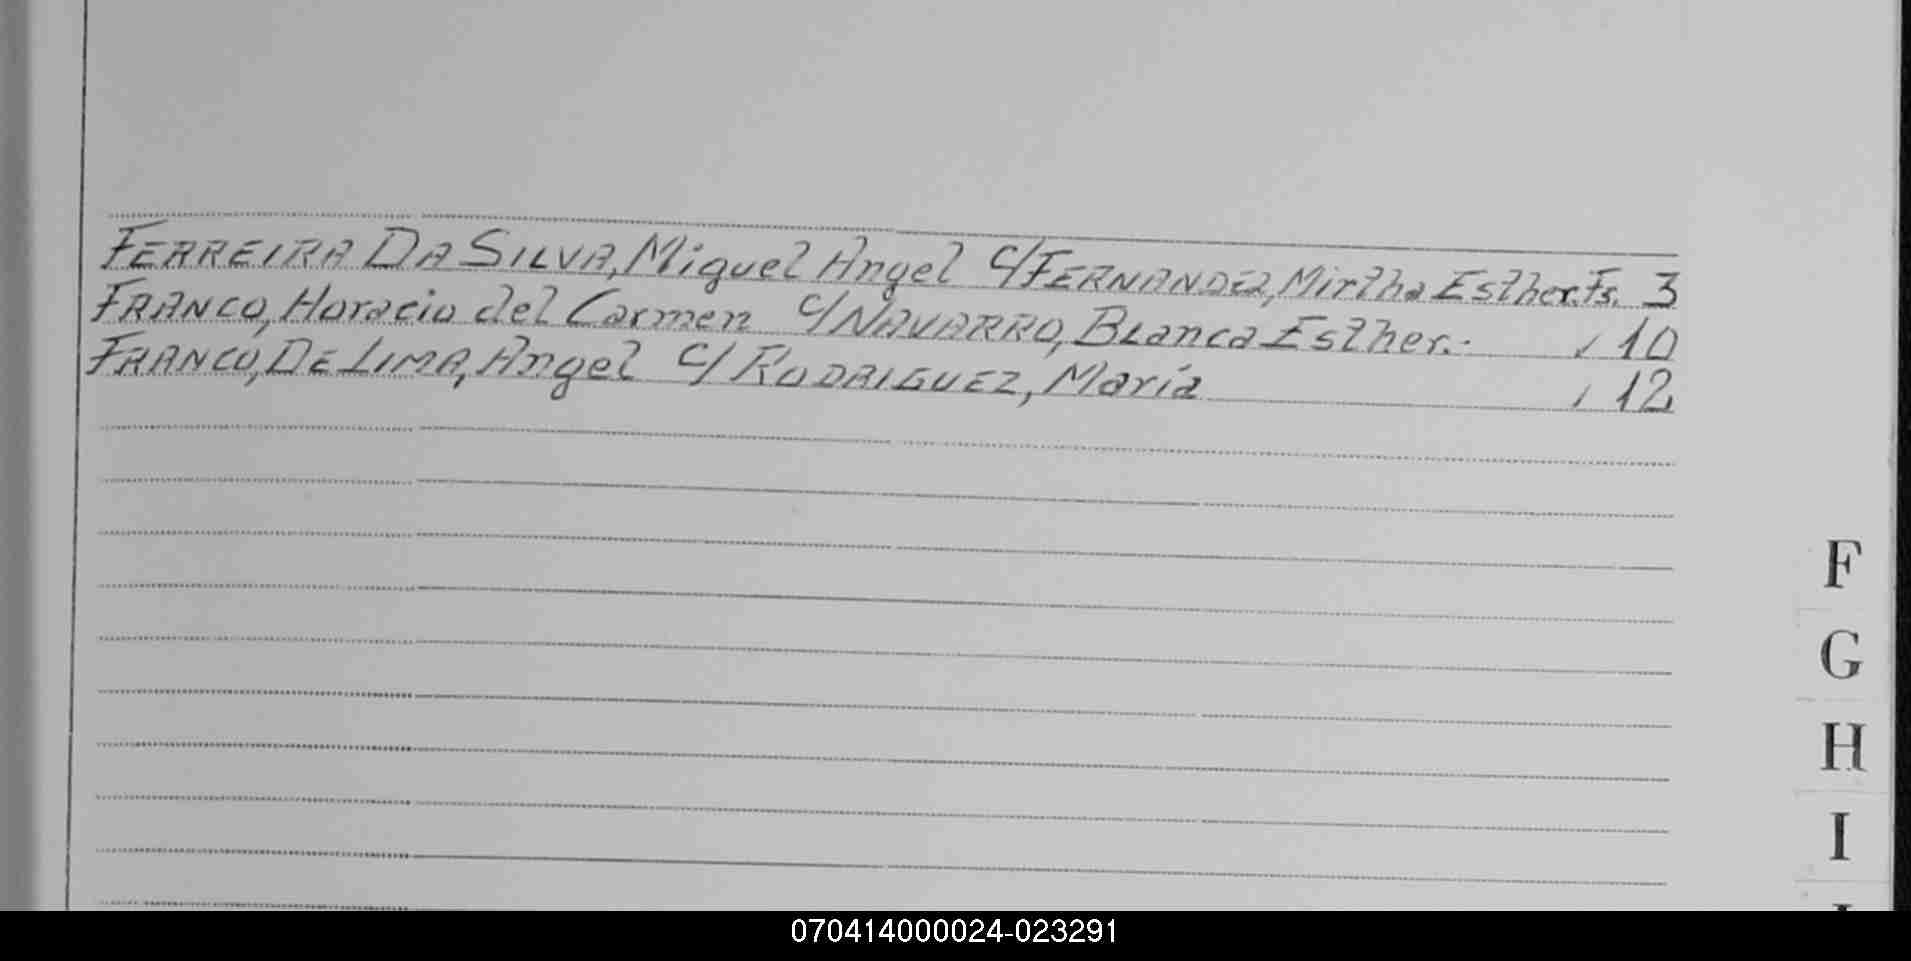 FERREIRA DA SILVA, Miguel Angel C/FERNANDEZ, Mirtha Esther. Fs. 3
FRANCO, Horacio del Carmen C/NAVARRO, Blanca Esther.- " 10
FRANCO, DE LIMA, Angel C/ RODRIGUEZ, María " 12
F
G
H
I
070414000024-023291